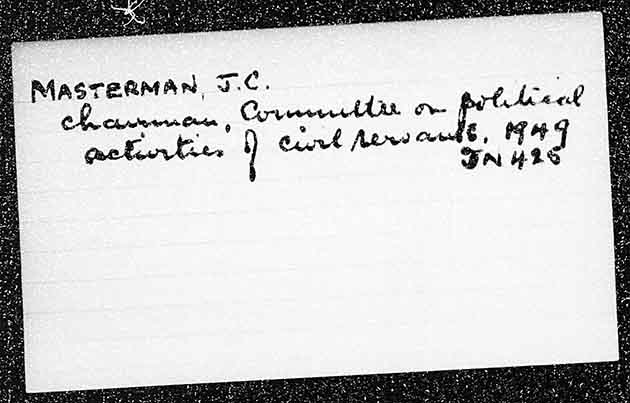 MASTERMAN, J.C.
chairman, Committee on political
activities of civil servants, 1949
JN 425